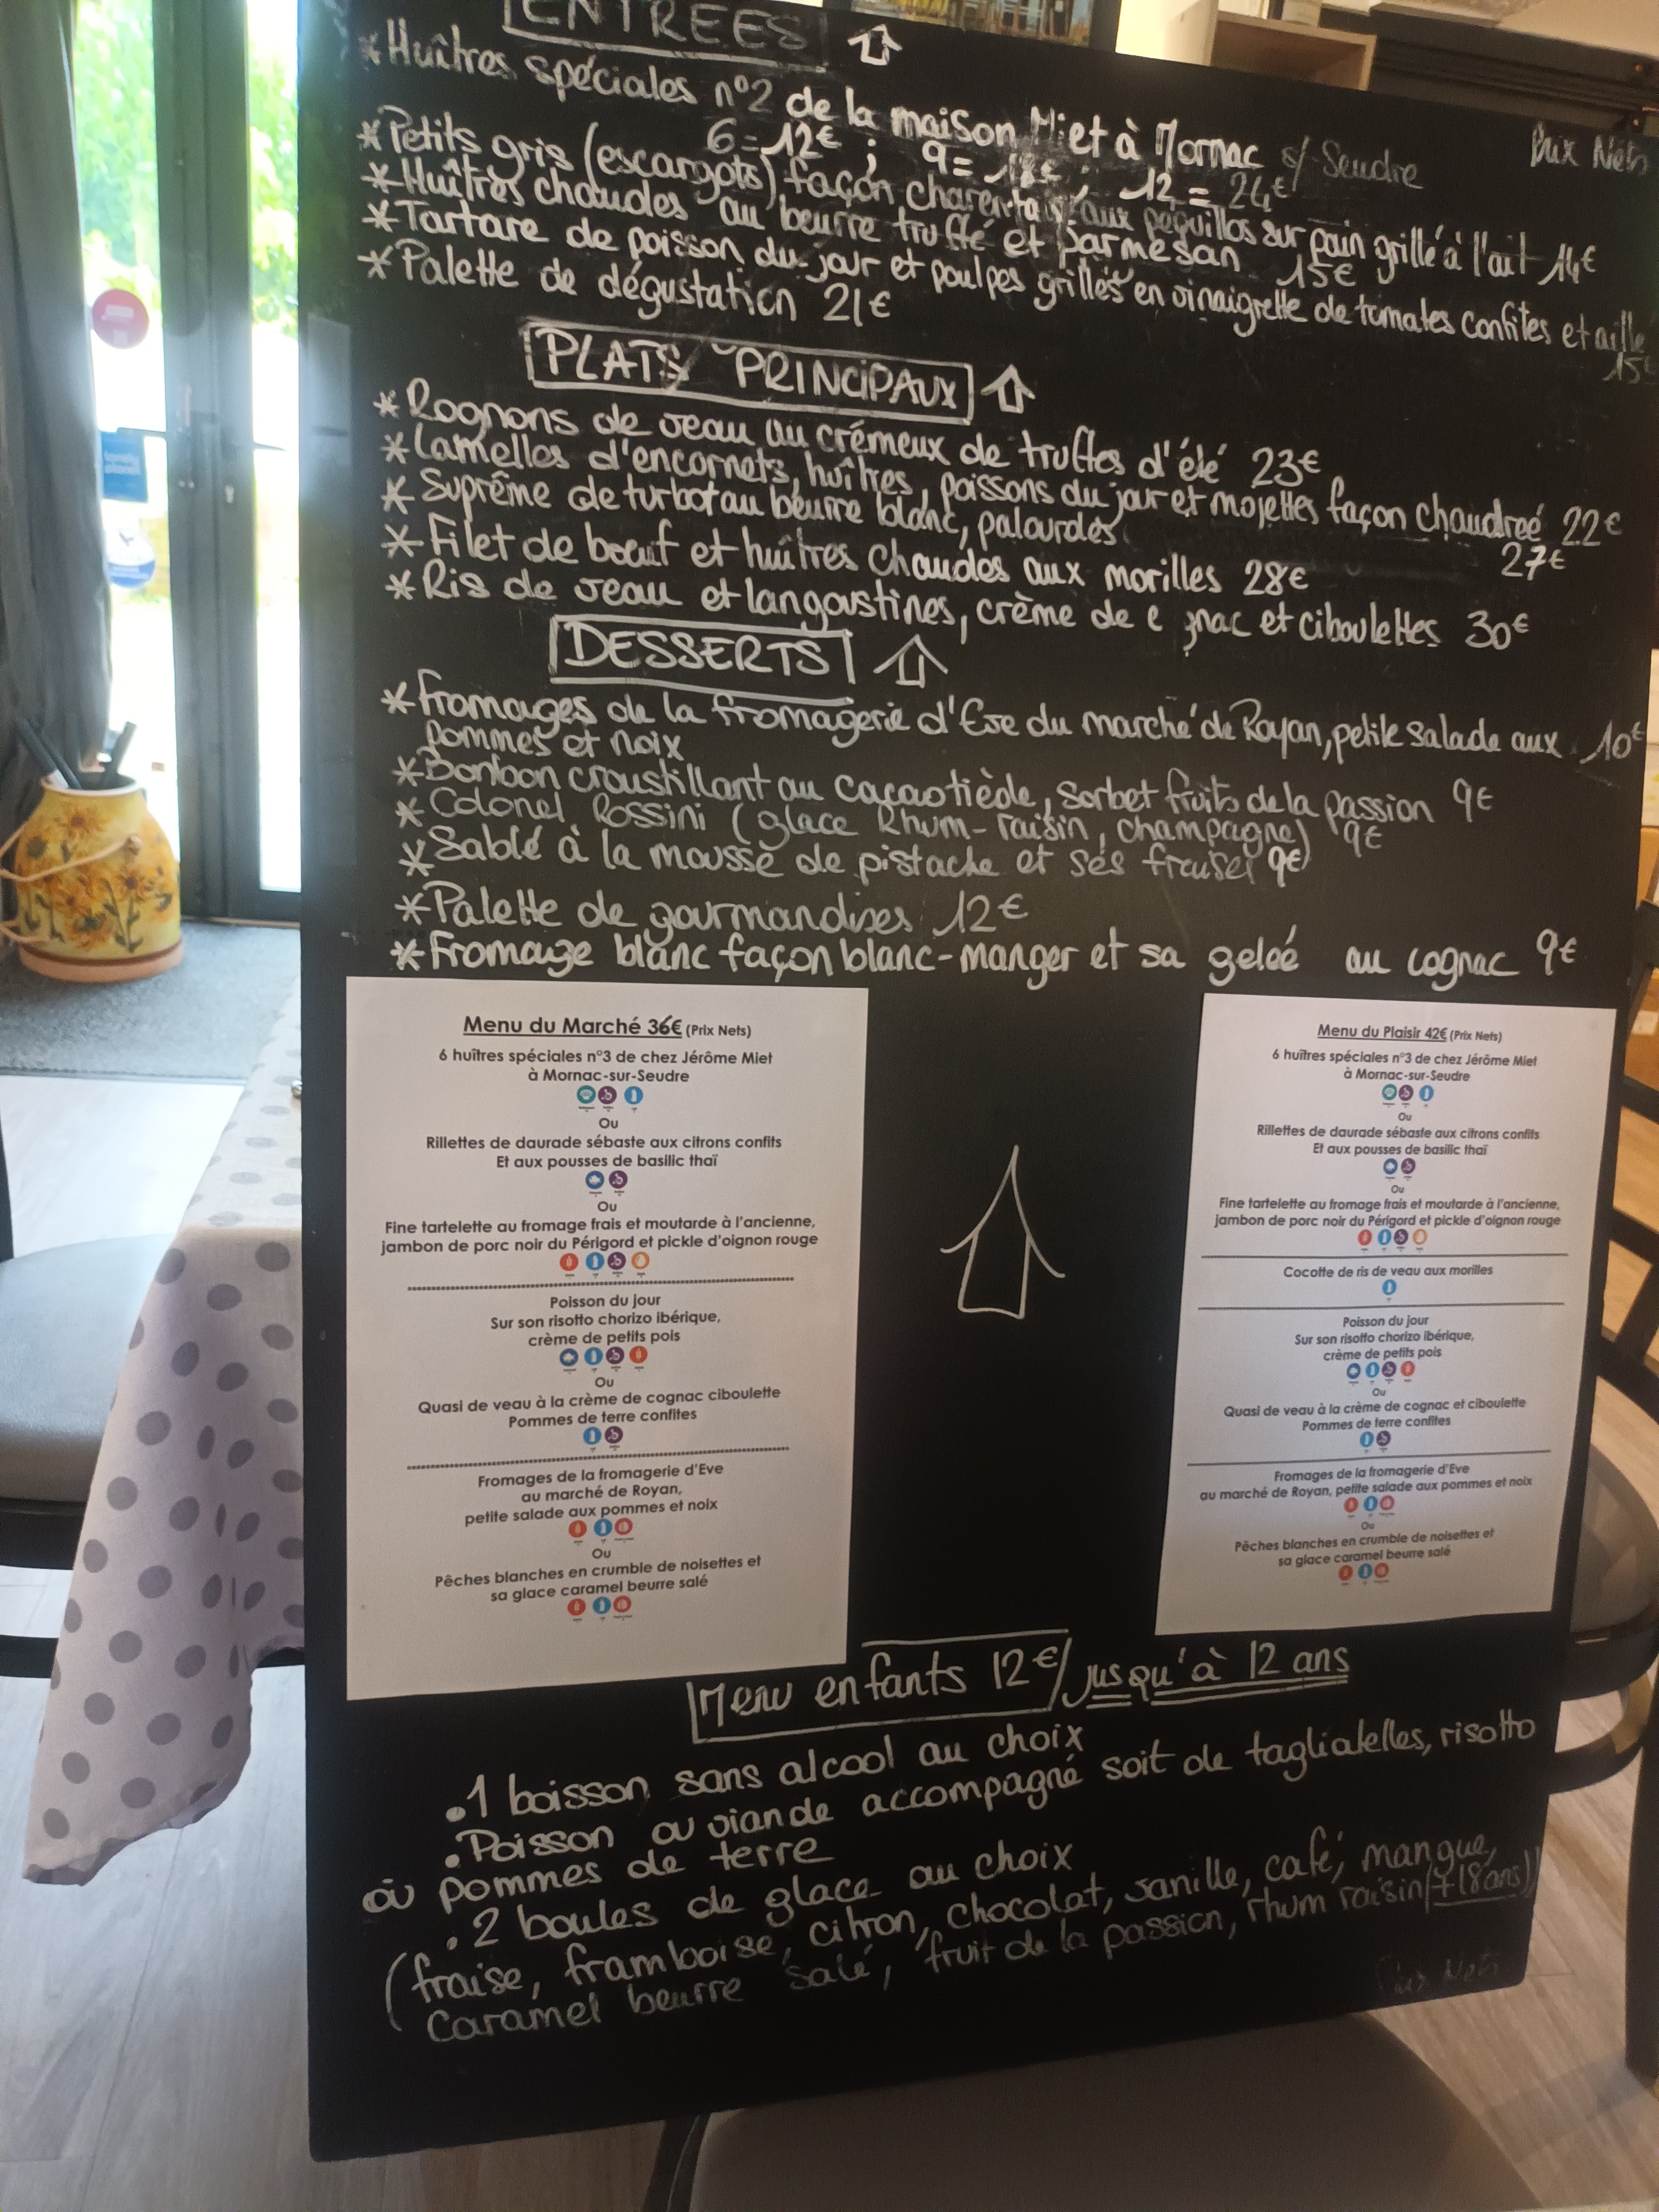 ENTREES
*Huîtres spéciales n°2 de la maison Miet à Mornac s/ Seudre
Prix Nets
6=12€ ; 9= 18€ ; 12 = 24€
*Petits gris (escargots) façon charentais aux pequillos sur pain grillé à l'ail 14€
*Huîtres chaudes au beurre truffé et parmesan 15€
*Tartare de poisson du jour et poulpes grillés en vinaigrette de tomates confites et aille
15€
*Palette de dégustation 21€
PLATS PRINCIPAUX
*Rognons de veau au crémeux de truffes d'été 23€
*Lamelles d'encornets, huîtres, poissons du jour et mojettes façon chaudreé 22€
*Suprême de turbot au beurre blanc, palourdes
27€
*Filet de bœuf et huîtres chaudes aux morilles 28€
*Ris de veau et langoustines, crème de c gnac et ciboulettes 30€
DESSERTS
*Fromages de la fromagerie d'Eve du marché de Royan, petite salade aux 10€
pommes et noix
*Bonbon croustillant au cacao tiède, sorbet fruits de la passion 9€
*Colonel Rossini (glace Rhum-raisin, champagne) 9€
*Sablé à la mousse de pistache et ses fraises 9€
*Palette de gourmandises 12€
*Fromage blanc façon blanc-manger et sa geleé au cognac 9€
Menu du Marché 36€ (Prix Nets)
6 huîtres spéciales n°3 de chez Jérôme Miet
à Mornac-sur-Seudre
Ou
Rillettes de daurade sébaste aux citrons confits
Et aux pousses de basilic thaï
Ou
Fine tartelette au fromage frais et moutarde à l'ancienne,
jambon de porc noir du Périgord et pickle d'oignon rouge
Poisson du jour
Sur son risotto chorizo ibérique,
crème de petits pois
Ou
Quasi de veau à la crème de cognac ciboulette
Pommes de terre confites
Fromages de la fromagerie d'Eve
au marché de Royan,
petite salade aux pommes et noix
Ou
Pêches blanches en crumble de noisettes et
sa glace caramel beurre salé
Menu du Plaisir 42€ (Prix Nets)
6 huîtres spéciales n°3 de chez Jérôme Miet
à Mornac-sur-Seudre
Ou
Rillettes de daurade sébaste aux citrons confits
Et aux pousses de basilic thaï
Ou
Fine tartelette au fromage frais et moutarde à l'ancienne,
jambon de porc noir du Périgord et pickle d'oignon rouge
Cocotte de ris de veau aux morilles
Poisson du jour
Sur son risotto chorizo ibérique,
crème de petits pois
Ou
Quasi de veau à la crème de cognac et ciboulette
Pommes de terre confites
Fromages de la fromagerie d'Eve
au marché de Royan, petite salade aux pommes et noix
Ou
Pêches blanches en crumble de noisettes et
sa glace caramel beurre salé
Menu enfants 12€/ jusqu'à 12 ans
.1 boisson sans alcool au choix
.Poisson ou viande accompagné soit de tagliatelles, risotto
ou pommes de terre
.2 boules de glace au choix
(fraise, framboise, citron, chocolat, vanille, café, mangue,
Caramel beurre salé, fruit de la passion, rhum raisin (+18 ans))
Prix Nets